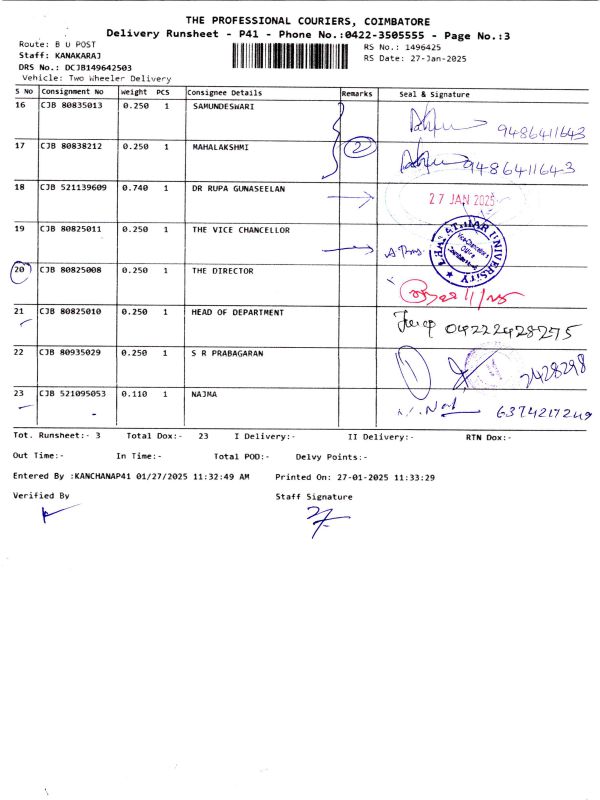 THE PROFESSIONAL COURIERS, COIMBATORE
Delivery Runsheet - P41 - Phone No.:0422-3505555 - Page No.:3
Route: B U POST
RS No.: 1496425
Staff: KANAKARAJ
RS Date: 27-Jan-2025
DRS No.: DCJB149642503
Vehicle: Two Wheeler Delivery
S No Consignment No Weight PCS Consignee Details Remarks Seal & Signature
16 CJB 80835013 0.250 1 SAMUNDESWARI 9486411643
17 CJB 80838212 0.250 1 MAHALAKSHMI 2 9486411643
18 CJB 521139609 0.740 1 DR RUPA GUNASEELAN 27 JAN 2025
19 CJB 80825011 0.250 1 THE VICE CHANCELLOR
20 CJB 80825008 0.250 1 THE DIRECTOR
21 CJB 80825010 0.250 1 HEAD OF DEPARTMENT 04222428275
22 CJB 80935029 0.250 1 S R PRABAGARAN 2428298
23 CJB 521095053 0.110 1 NAJMA 6374217249
Tot. Runsheet:- 3 Total Dox:- 23 I Delivery:- II Delivery:- RTN Dox:-
Out Time:- In Time:- Total POD:- Delvy Points:-
Entered By :KANCHANAP41 01/27/2025 11:32:49 AM Printed On: 27-01-2025 11:33:29
Verified By Staff Signature